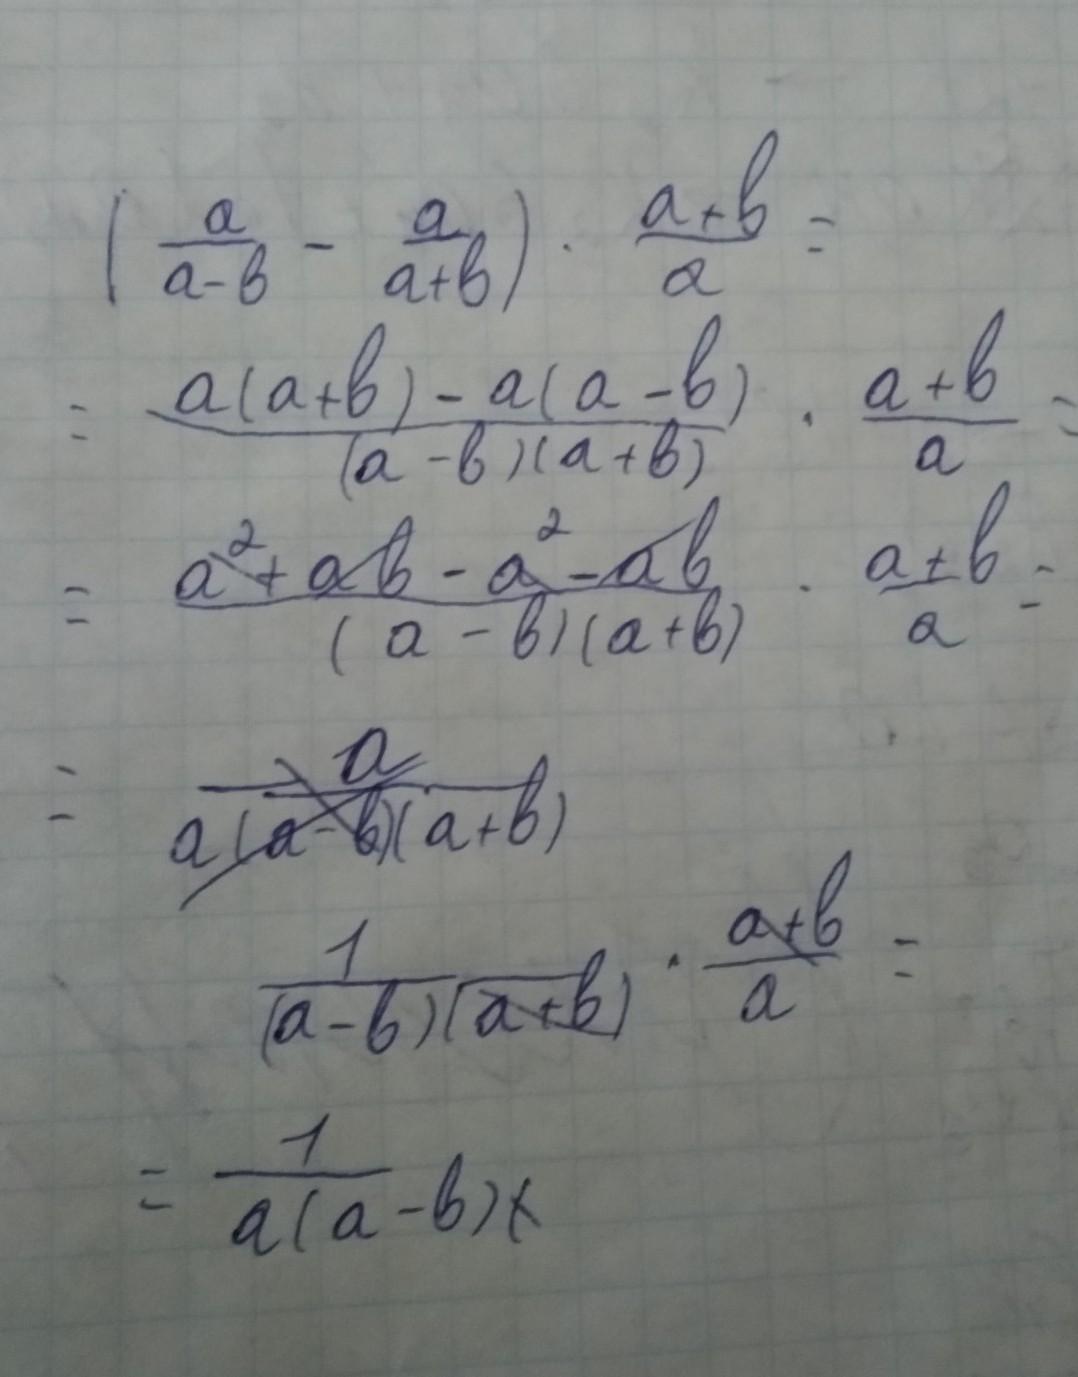 (a/(a-b) - a/(a+b)) · (a+b)/a =
= (a(a+b) - a(a-b))/((a-b)(a+b)) · (a+b)/a =
= (a² + ab - a² - ab)/((a-b)(a+b)) · (a+b)/a =
= a/(a(a-b)(a+b))
1/((a-b)(a+b)) · (a+b)/a =
= 1/(a(a-b))